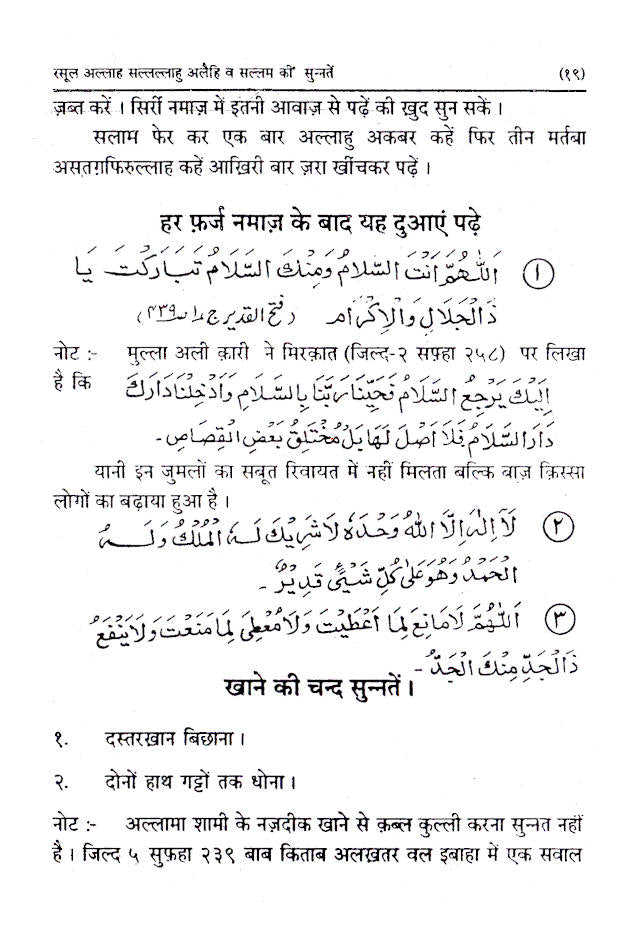 रसूल अल्लाह सल्लल्लाहु अलैहि व सल्लम की सुन्नतें (१९)
ज़ब्त करें । सिर्री नमाज़ में इतनी आवाज़ से पढ़ें की ख़ुद सुन सकें ।
सलाम फेर कर एक बार अल्लाहु अकबर कहें फिर तीन मर्तबा
असतग़फिरुल्लाह कहें आख़िरी बार ज़रा खींचकर पढ़ें ।
हर फ़र्ज नमाज़ के बाद यह दुआएं पढ़े
① اَللّٰهُمَّ اَنْتَ السَّلَامُ وَمِنْكَ السَّلَامُ تَبَارَكْتَ يَا
ذَالْجَلَالِ وَالْاِكْرَام (فتح القدير ج۱ ص۴۳۹)
नोट :- मुल्ला अली क़ारी ने मिरक़ात (जिल्द-२ सफ़्हा २५८) पर लिखा
है कि اِلَيْكَ يَرْجِعُ السَّلَامُ فَحَيِّنَا رَبَّنَا بِالسَّلَامِ وَاَدْخِلْنَا دَارَكَ
دَارَ السَّلَامُ فَلَا اَصْلَ لَهَا بَلْ مُخْتَلِقُ بَعْضِ الْقِصَاصِ ۔
यानी इन जुमलों का सबूत रिवायत में नहीं मिलता बल्कि बाज़ क़िस्सा
लोगों का बढ़ाया हुआ है ।
② لَآ اِلٰهَ اِلَّا اللهُ وَحْدَهٗ لَا شَرِيْكَ لَهٗ لَهُ الْمُلْكُ وَلَهُ
الْحَمْدُ وَهُوَ عَلٰى كُلِّ شَيْئٍ قَدِيْرٌ ۔
③ اَللّٰهُمَّ لَا مَانِعَ لِمَا اَعْطَيْتَ وَلَا مُعْطِيَ لِمَا مَنَعْتَ وَلَا يَنْفَعُ
ذَالْجَدِّ مِنْكَ الْجَدُّ ۔
खाने की चन्द सुन्नतें ।
१. दस्तरख़ान बिछाना ।
२. दोनों हाथ गट्टों तक धोना ।
नोट :- अल्लामा शामी के नज़दीक खाने से क़ब्ल कुल्ली करना सुन्नत नहीं
है । जिल्द ५ सुफ़हा २३९ बाब किताब अलख़तर वल इबाहा में एक सवाल